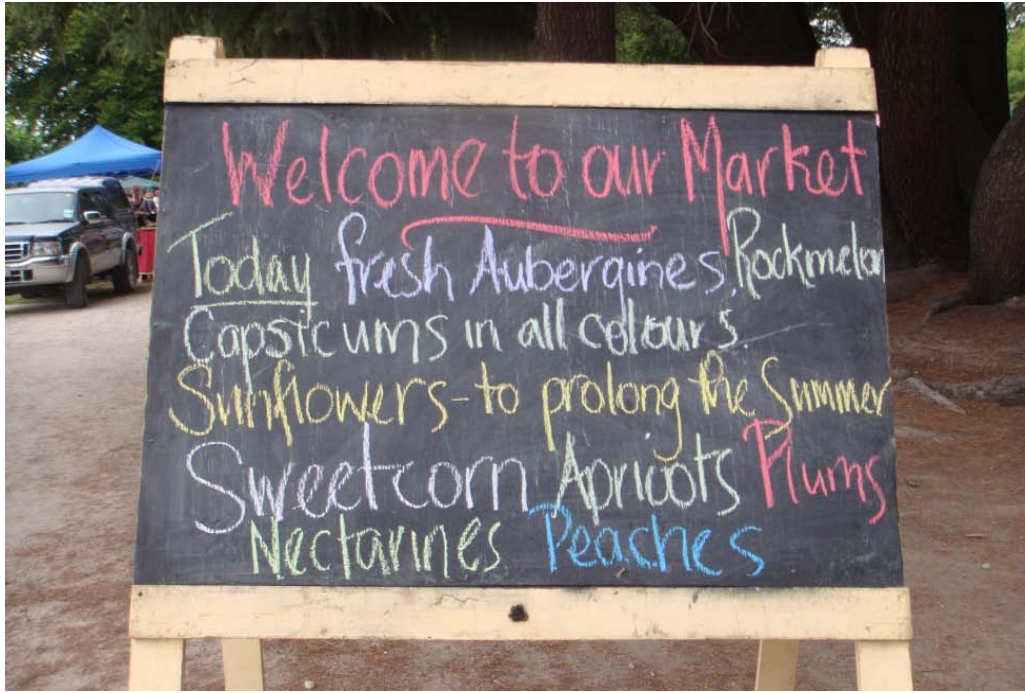 Welcome to our Market
Today fresh Aubergines, Rockmelon
Capsicums in all colours.
Sunflowers - to prolong the Summer
Sweetcorn Apricots Plums
Nectarines Peaches